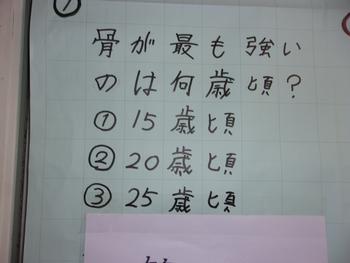 骨が最も強い
のは何歳頃?
①15歳頃
②20歳頃
③25歳頃